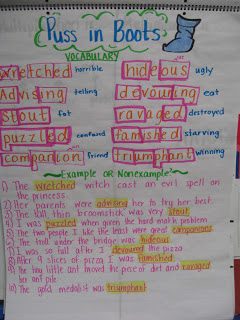 Puss in Boots
VOCABULARY
wretched horrible
hideous ugly
Advising telling
devouring eat
stout fat
ravaged destroyed
puzzled confused
famished starving
companion friend
triumphant winning
~Example or Nonexample?~
1) The wretched witch cast an evil spell on
the princess.
2) Her parents were advising her to try her best.
3) The tall thin broomstick was very stout.
4) I was puzzled when given the hard math problem.
5) The two people I like the least were great companions.
6) The troll under the bridge was hideous.
7) I was so full after I devoured the pizza.
8) After 9 slices of pizza I was famished.
9) The tiny little ant moved the piece of dirt and ravaged
her ant pile.
10) The gold medalist was triumphant